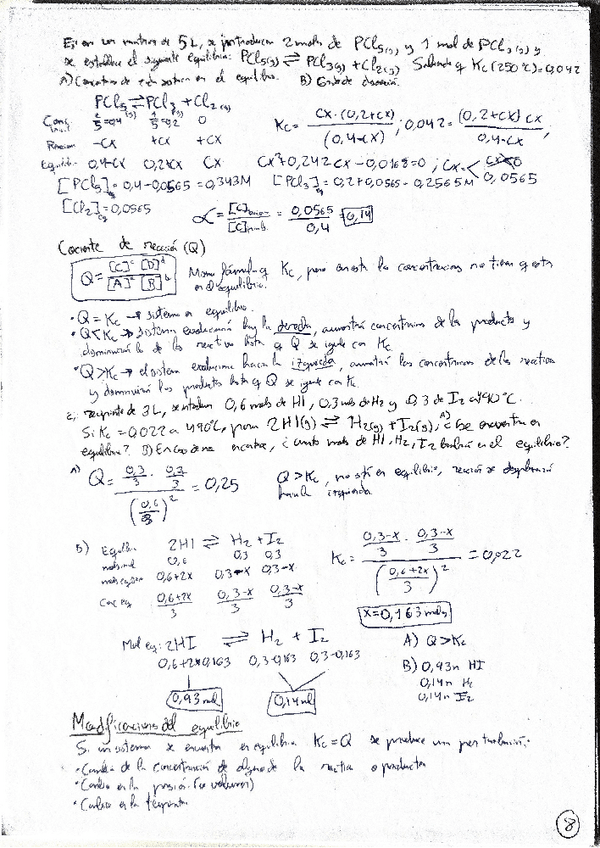 Ej: en un matraz de 5L, se introducen 2 moles de PCl5(g) y 1 mol de PCl3(g) y
se establece el siguiente equilibrio: PCl5(g) ⇌ PCl3(g) + Cl2(g) Sabiendo q Kc (250ºC) = 0,042
A) en el equilibrio. B) Grado de disociación.
PCl5 ⇌ PCl3 + Cl2(g)
Conc. inicial 2/5 = 0,4 1/5 = 0,2 0
Reaccion -cx +cx +cx
Equilibrio 0,4-cx 0,2+cx cx
Kc = cx·(0,2+cx) / (0,4-cx) ; 0,042 = (0,2+cx) cx / 0,4-cx ;
cx² + 0,242cx - 0,0168 = 0 ; cx = < cx<0 0,0565
[PCl5]eq = 0,4 - 0,0565 = 0,343M [PCl3]eq = 0,2 + 0,0565 = 0,2565M
[Cl2]eq = 0,0565 α = [C] / [C] = 0,0565 / 0,4 = 0,14
Cociente de reacción (Q)
Q = [C]^c [D]^d / [A]^a [B]^b Misma fórmula q Kc, pero en esta las concentraciones no tienen q estar
en el equilibrio.
• Q = Kc → sistema en equilibrio.
• Q < Kc → sistema evolucionará hacia la derecha, aumentará concentraciones de los productos y
disminuirá la de los reactivos hasta q Q se iguale con Kc
• Q > Kc → el sistema evoluciona hacia la izquierda, aumentará las concentraciones de los reactivos
y disminuirá los productos hasta q Q se iguale con Kc
Ej: recipiente de 3L, se introducen 0,6 moles de HI, 0,3 moles de H2 y 0,3 de I2 a 490ºC.
Si Kc = 0,022 a 490ºC, para 2HI(g) ⇌ H2(g) + I2(g); A) ¿se encuentra en
equilibrio? B) En caso de no encontrarse, ¿cuantos moles de HI, H2, I2 habrá en el equilibrio?
A) Q = 0,3/3 · 0,3/3 / (0,6/3)² = 0,25 Q > Kc, no está en equilibrio, reacción se desplazará
hacia izquierda
B) Equilibrio 2HI ⇌ H2 + I2
moles inicial 0,6 0,3 0,3
moles equilibrio 0,6+2x 0,3-x 0,3-x
Conc eq 0,6+2x/3 0,3-x/3 0,3-x/3
Kc = 0,3-x/3 · 0,3-x/3 / (0,6+2x/3)² = 0,022
x = 0,163 moles
Mol eq: 2HI ⇌ H2 + I2
0,6+2·0,163 0,3-0,163 0,3-0,163
0,93 mol 0,14 mol
A) Q > Kc
B) 0,93n HI
0,14n H2
0,14n I2
Modificaciones del equilibrio
Si un sistema se encuentra en equilibrio Kc = Q se produce una perturbación:
• Cambio de la concentración de alguno de los reactivos o productos
• Cambio en la presión (o volumen)
• Cambio en la temperatura
8